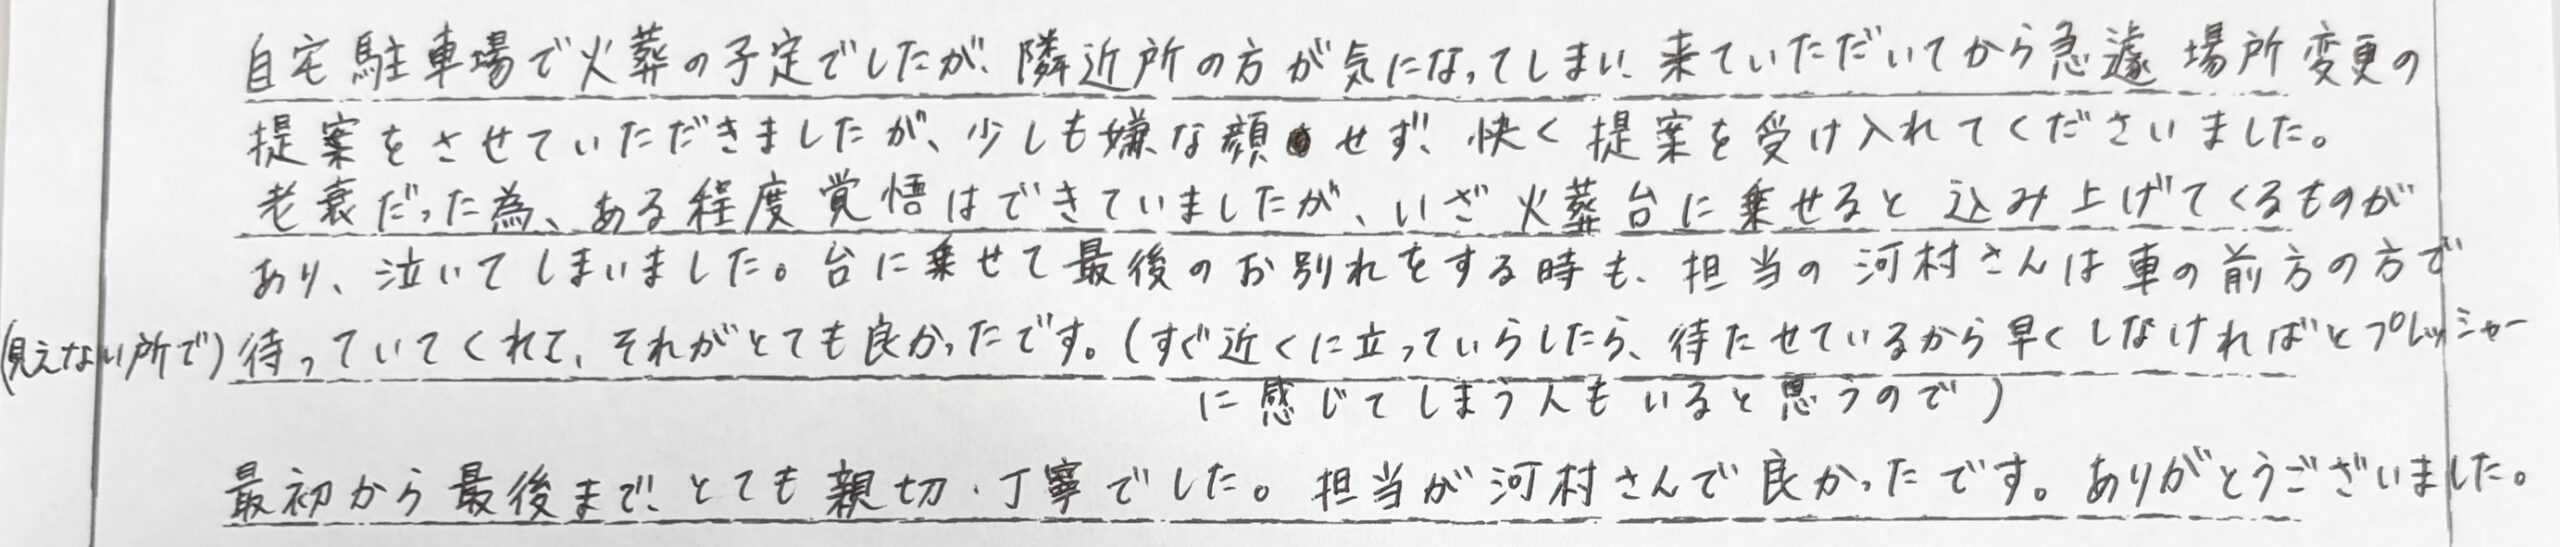 自宅駐車場で火葬の予定でしたが、隣近所の方が気になってしまい、来ていただいてから急遽場所変更の
提案をさせていただきましたが、少しも嫌な顔せず、快く提案を受け入れてくださいました。
老衰だった為、ある程度覚悟はできていましたが、いざ火葬台に乗せると込み上げてくるものが
あり、泣いてしまいました。台に乗せて最後のお別れをする時も、担当の河村さんは車の前方の方で
(見えない所で)待っていてくれて、それがとても良かったです。(すぐ近くに立っていらしたら、待たせているから早くしなければとプレッシャー
に感じてしまう人もいると思うので)
最初から最後まで、とても親切・丁寧でした。担当が河村さんで良かったです。ありがとうございました。